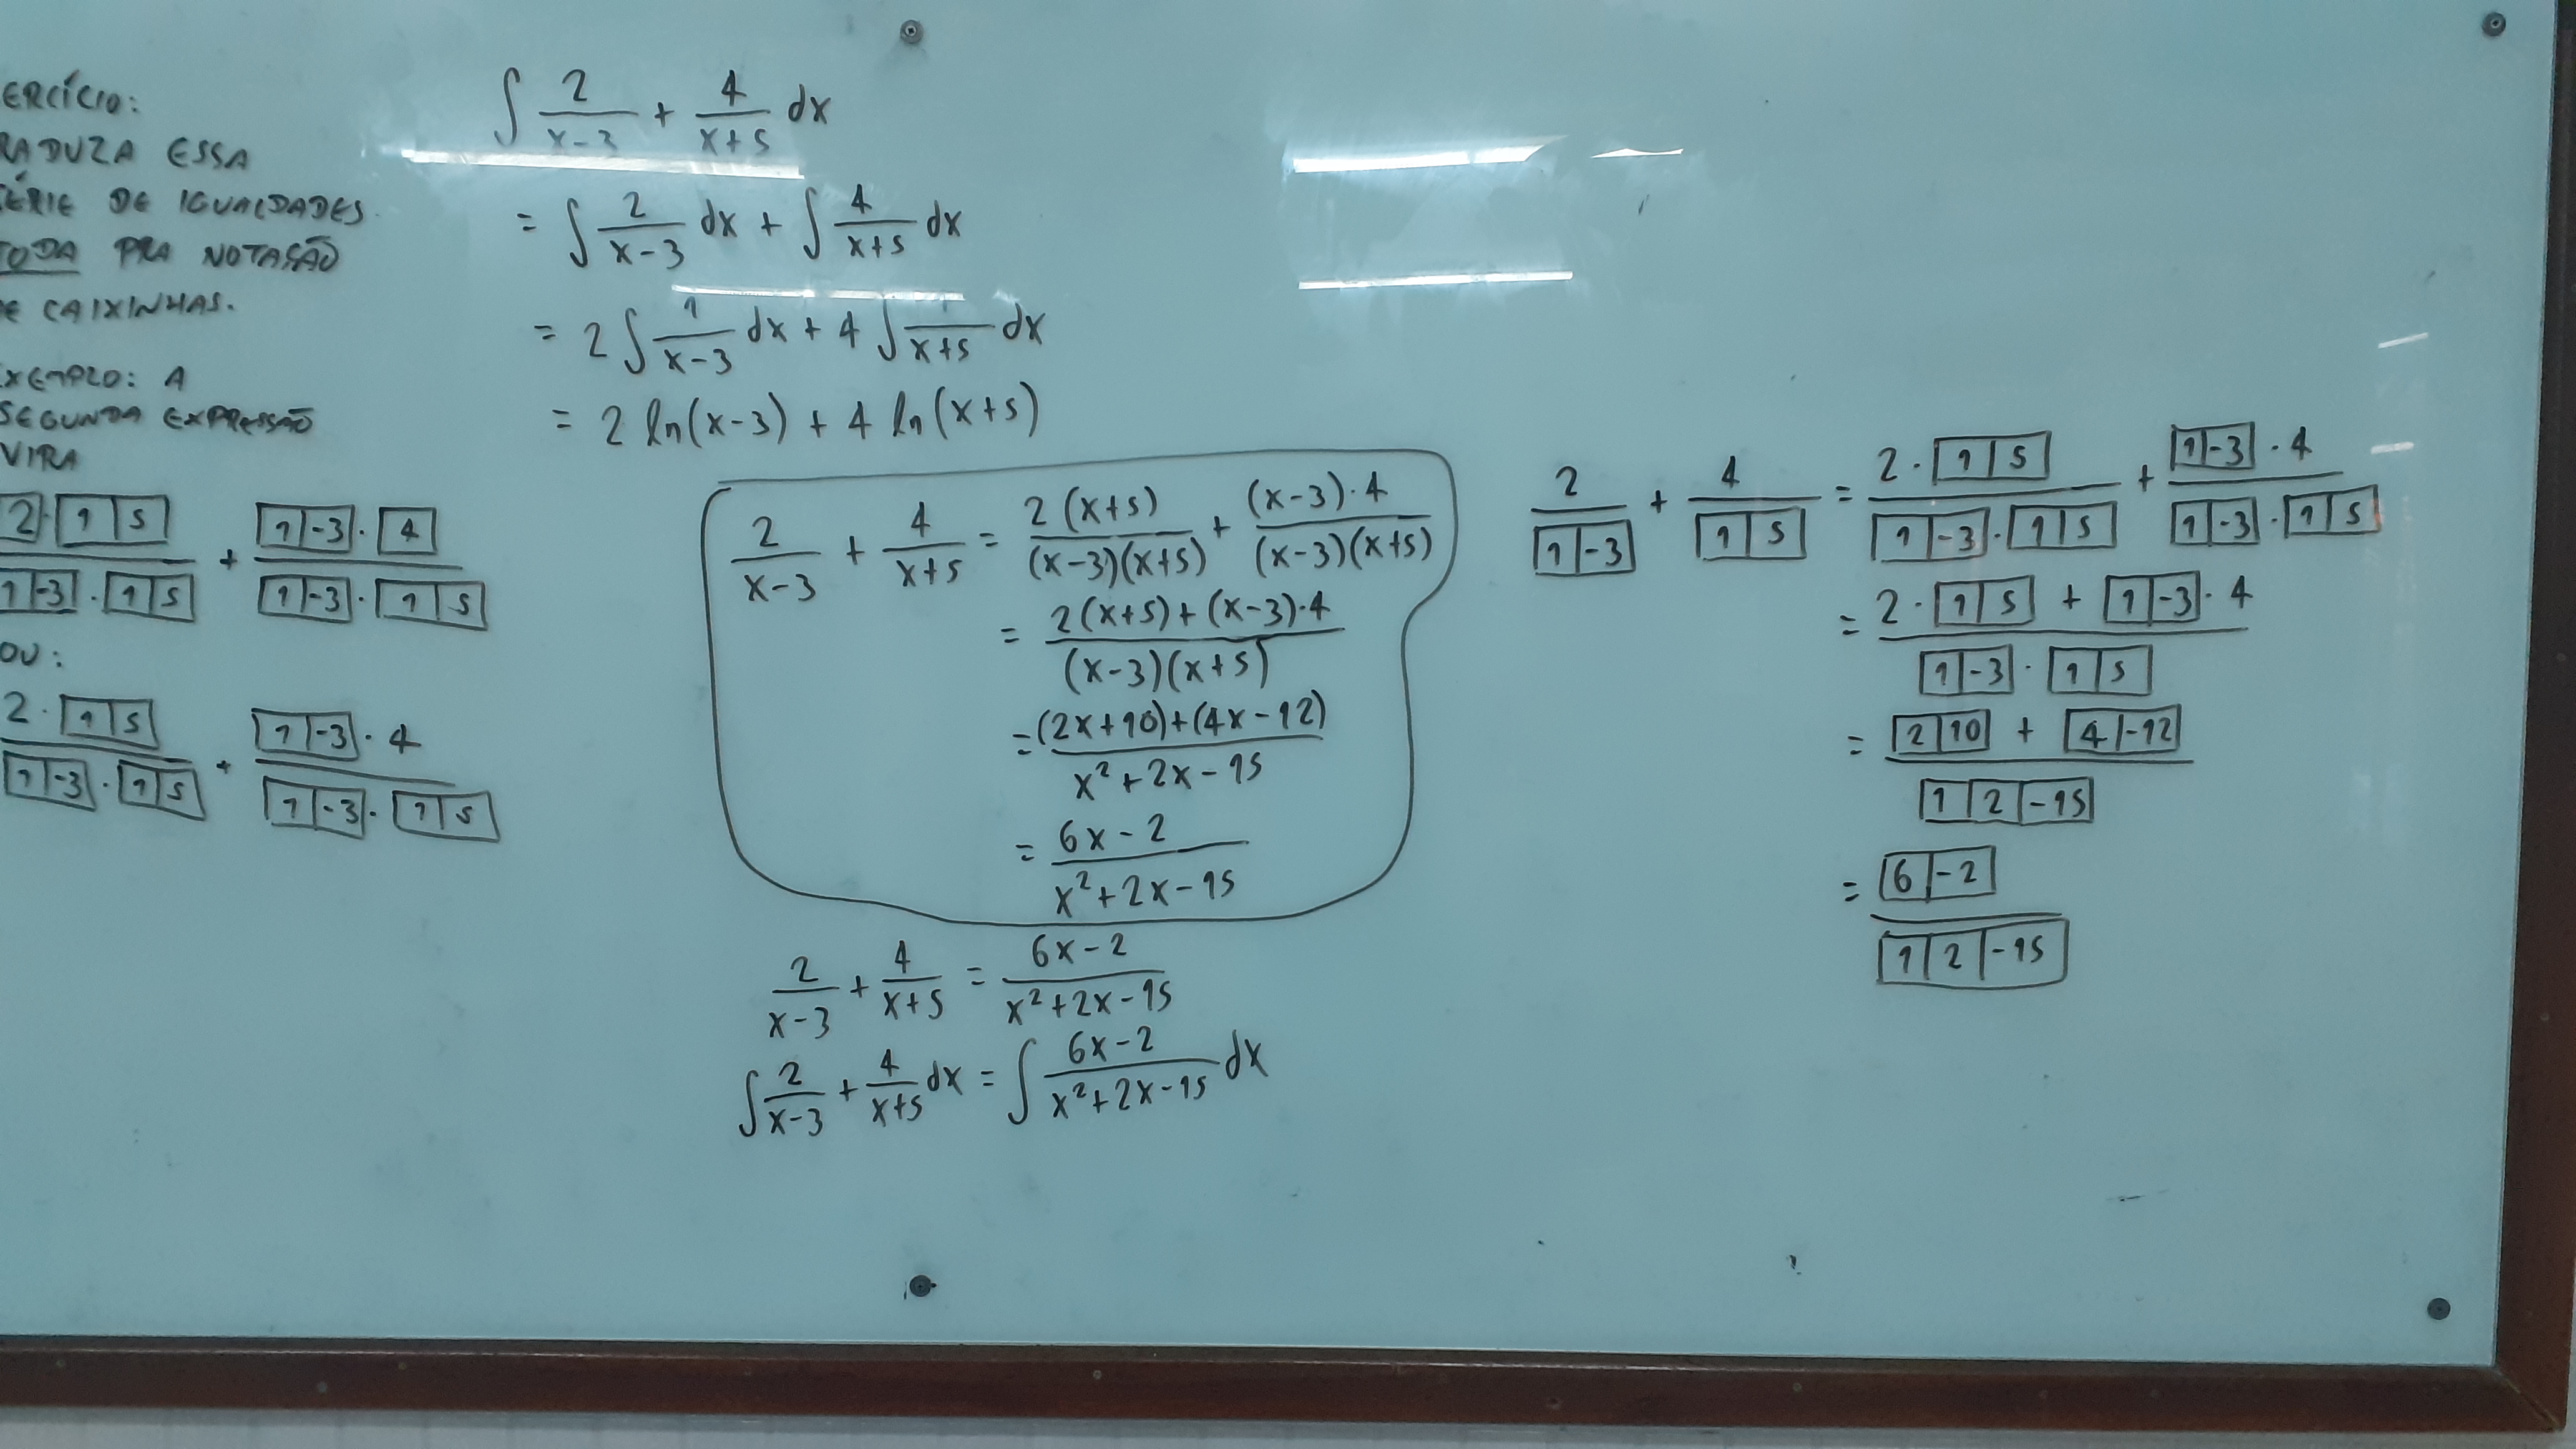 ERCÍCIO:
RADUZA ESSA
SÉRIE DE IGUALDADES
TODA PRA NOTAÇÃO
E CAIXINHAS.
EXEMPLO: A
SEGUNDA EXPRESSÃO
VIRA
2 · [1|5] / [1|-3] · [1|5] + [1|-3] · [4] / [1|-3] · [1|5]
OU:
2 · [1|5] / [1|-3] · [1|5] + [1|-3] · 4 / [1|-3] · [1|5]
∫ 2/(x-3) + 4/(x+5) dx
= ∫ 2/(x-3) dx + ∫ 4/(x+5) dx
= 2 ∫ 1/(x-3) dx + 4 ∫ 1/(x+5) dx
= 2 ln(x-3) + 4 ln(x+5)
2/(x-3) + 4/(x+5) = 2(x+5)/(x-3)(x+5) + (x-3)·4/(x-3)(x+5)
= 2(x+5)+(x-3)·4 / (x-3)(x+5)
= (2x+10)+(4x-12) / x²+2x-15
= 6x-2 / x²+2x-15
2/(x-3) + 4/(x+5) = 6x-2 / x²+2x-15
∫ 2/(x-3) + 4/(x+5) dx = ∫ 6x-2 / x²+2x-15 dx
2/[1|-3] + 4/[1|5] = 2 · [1|5] / [1|-3] · [1|5] + [1|-3] · 4 / [1|-3] · [1|5]
= 2 · [1|5] + [1|-3] · 4 / [1|-3] · [1|5]
= [2|10] + [4|-12] / [1|2|-15]
= [6|-2] / [1|2|-15]